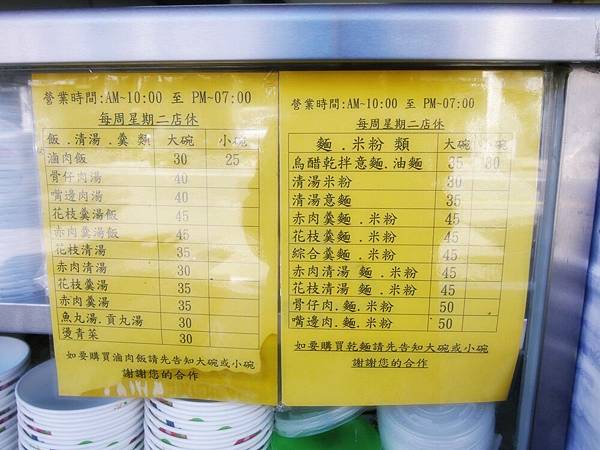 營業時間:AM~10:00 至 PM~07:00
每周星期二店休
飯 . 清湯 . 羹 類 大碗 小碗
滷肉飯 30 25
骨仔肉湯 40
嘴邊肉湯 40
花枝羹湯飯 45
赤肉羹湯飯 45
花枝清湯 35
赤肉清湯 30
花枝羹湯 35
赤肉羹湯 35
魚丸湯.貢丸湯 30
燙青菜 30
如要購買滷肉飯請先告知大碗或小碗
謝謝您的合作
營業時間:AM~10:00 至 PM~07:00
每周星期二店休
麵 . 米粉 類 大碗 小碗
烏醋乾拌意麵.油麵 35 30
清湯米粉 30
清湯意麵 35
赤肉羹麵 . 米粉 45
花枝羹麵 . 米粉 45
綜合羹麵 . 米粉 45
赤肉清湯 麵 . 米粉 45
花枝清湯 麵 . 米粉 45
骨仔肉.麵 . 米粉 50
嘴邊肉.麵 . 米粉 50
如要購買乾麵請先告知大碗或小碗
謝謝您的合作